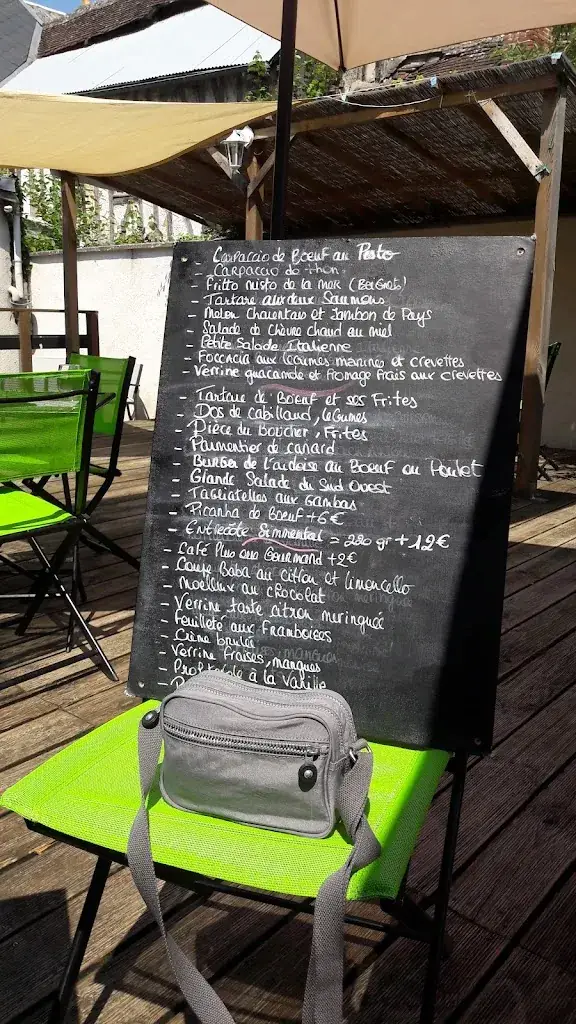 - Carpaccio de Boeuf au Pesto
- Carpaccio de thon.
- Fritto misto de la mer (Beignets)
- Tartare aux deux Saumons
- Melon Charentais et Jambon de Pays
- Salade de Chèvre chaud au miel
- Petite Salade Italienne
- Focencia aux légumes marinés et crevettes
- Verrine guacamole et fromage frais aux crevettes
- Tartare de Boeuf et ses Frites
- Dos de cabillaud, légumes
- Pièce du boucher, Frites
- Parmentier de canard
- Burger de l'ardoise au Boeuf ou Poulet
- Grande Salade du Sud Ouest
- Tagliatelles aux Gambas
- Picanha de Boeuf +6€
- Entrecôte Simmental = 280 gr + 12€
- Café Plus ou Gourmand +2€
- Coupe Baba au citron et limoncello
- Moelleux au chocolat
- Verrine tarte citron meringuée
- Feuilleté aux Framboises
- Crème brulée
- Verrine fraises, mangues
- Profiterole à la Vanille